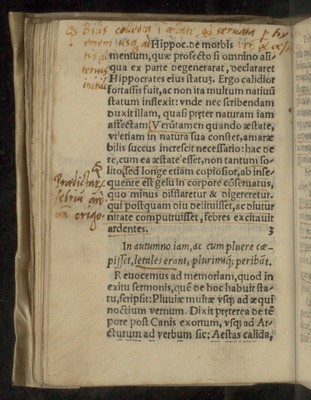 Hippoc. de morbis
mentum, quæ profecto si omnino ali-
qua ex parte degenerarat, declararet
Hippocrates eius status. Ergo calidior
fortassis fuit, ac non ita multum natiuū
statum inflexit: vnde nec scribendam
duxit illam, quasi pręter naturam iam
affectam. Verūtamen quando æstate,
vt etiam in natura sua constet, amaræ
bilis succus increscit necessario: hac de
re, cum ea æstate esset, non tantum so-
lito, sed longe etiam copiosior, ab inse-
quente est gelu in corpore cōseruatus,
quo minus difflaretur & digereretur.
qui postquam diu delituisset, ac diutur
nitate computruisset, febres excitauit
ardentes. 3
In autumno iam, ac cum pluere cœ-
pisset, letales erant, plurimiq; peribāt.
Reuocemus ad memoriam, quod in
exitu sermonis, quē de hoc habuit sta-
tu, scripsit: Pluuiæ multæ vsq; ad æqui
noctium vernum. Dixit pręterea de tē
pore post Canis exortum, vsq; ad Ar-
cturum ad verbum sic: Aestas calida,
origo